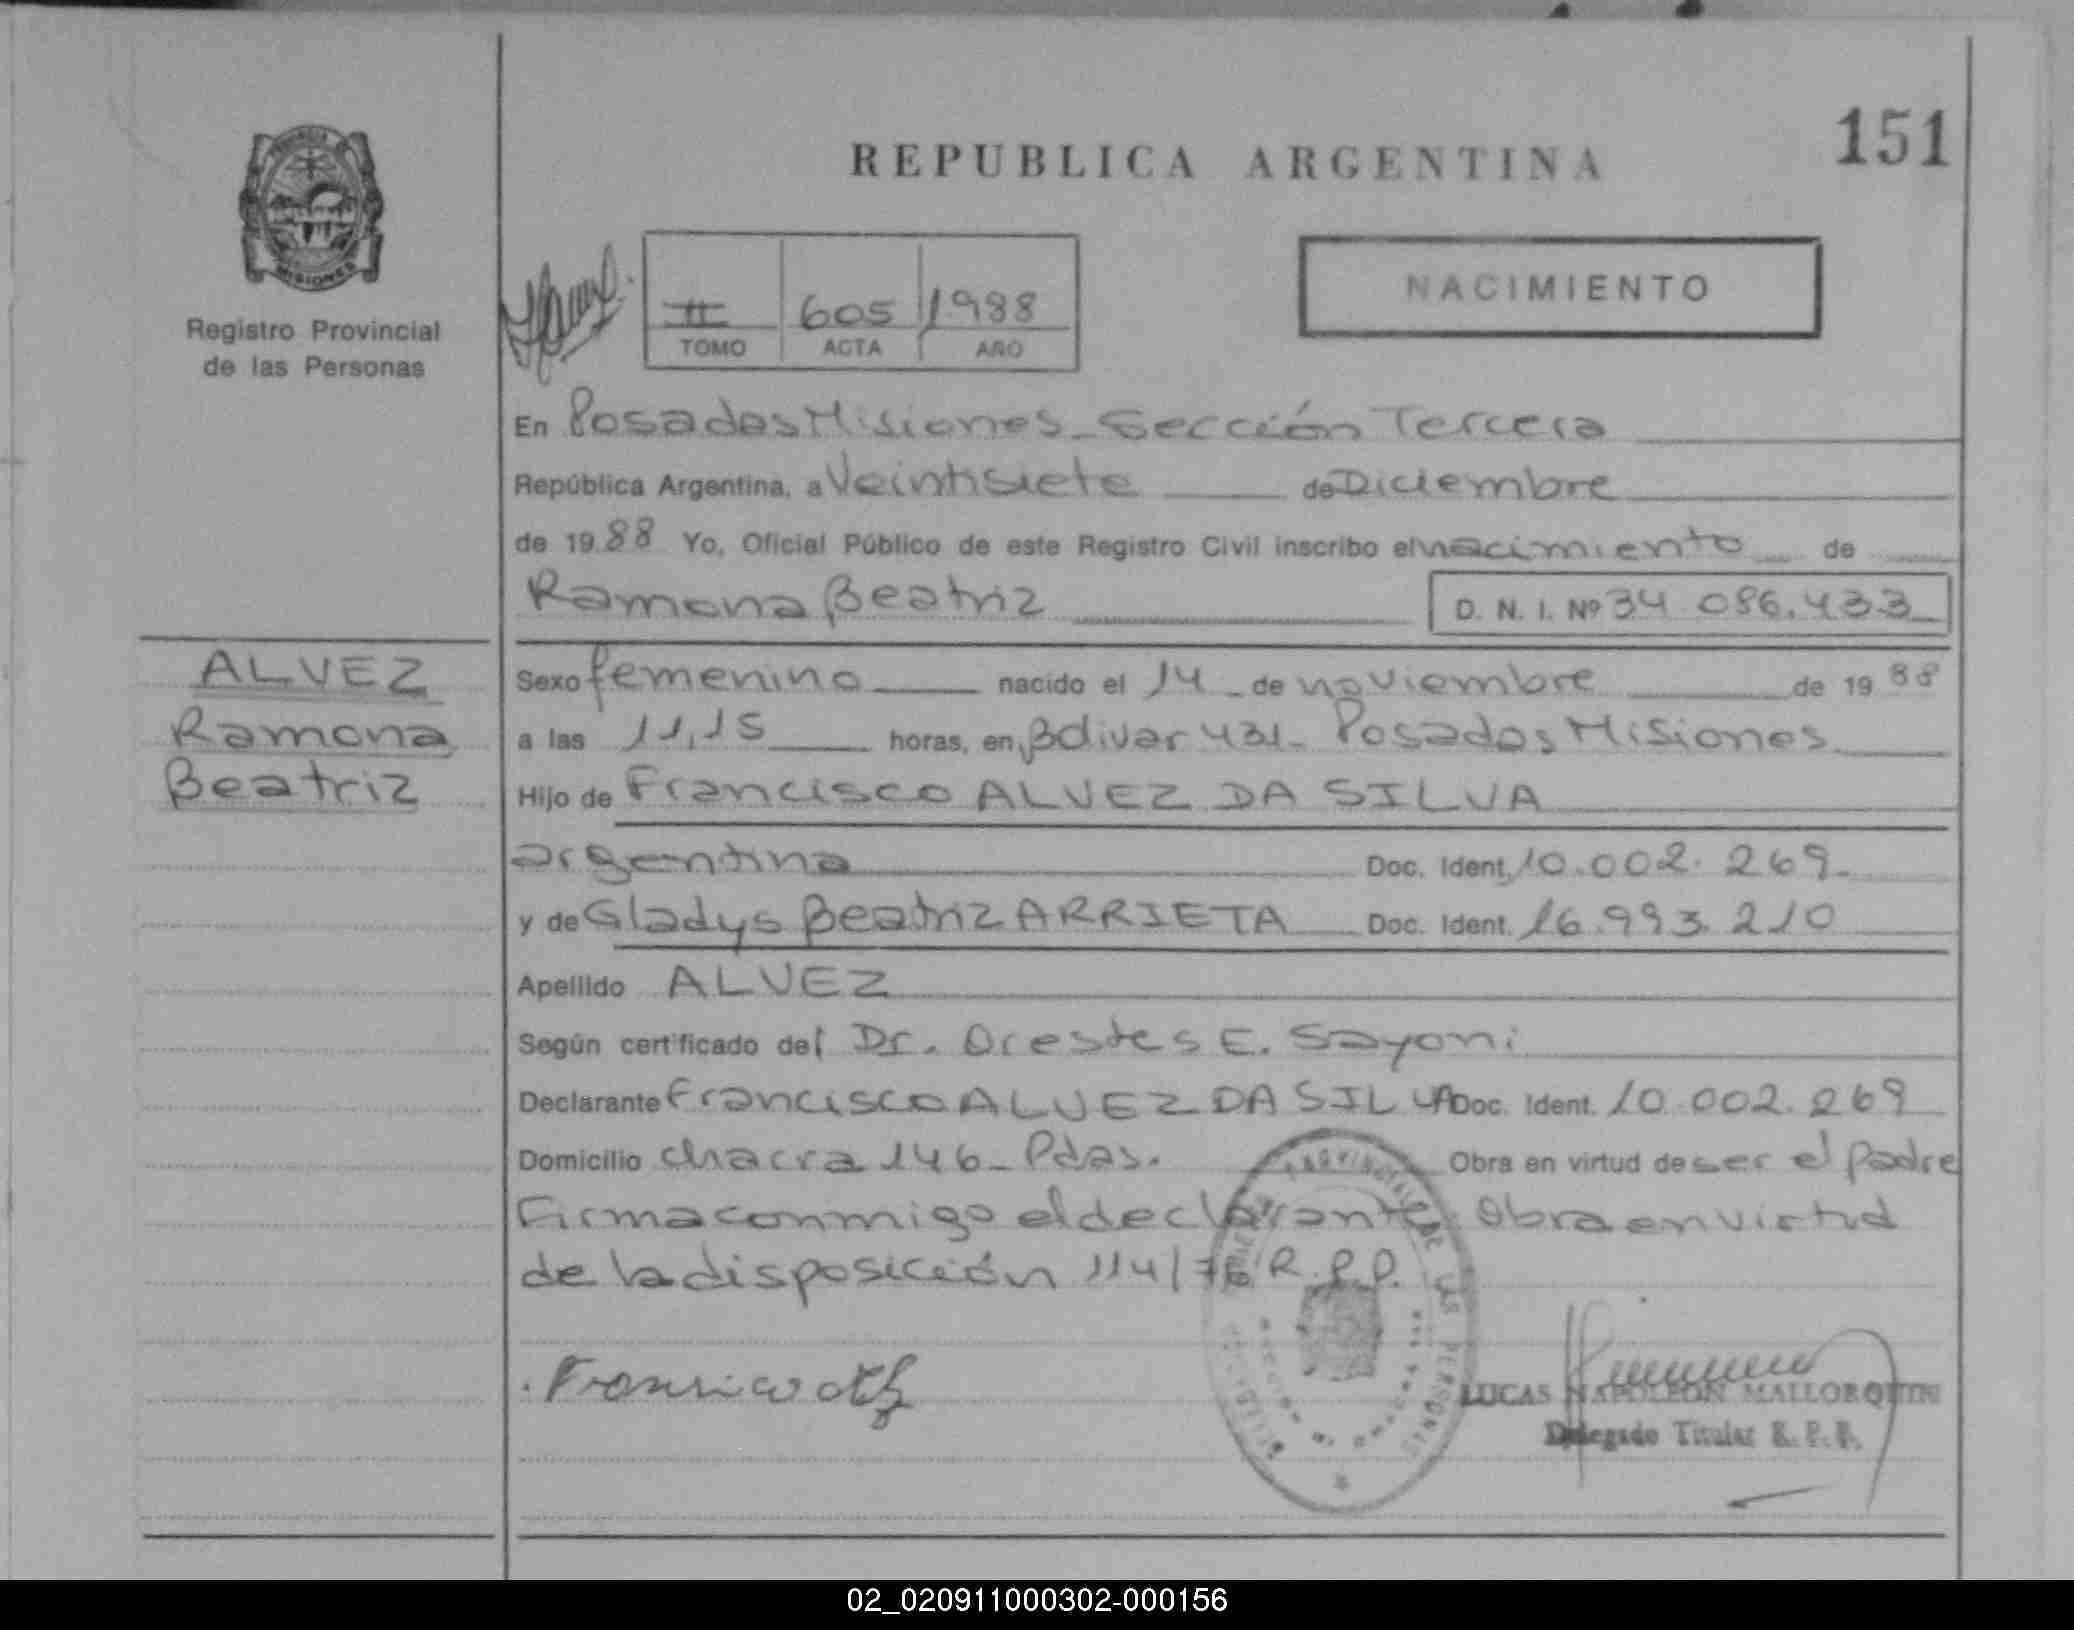 151
REPUBLICA ARGENTINA
NACIMIENTO
II 605 1988
TOMO ACTA AÑO
MISIONES
Registro Provincial
de las Personas
En Posadas Misiones - Sección Tercera
República Argentina, a Veintisiete de Diciembre
de 1988 Yo, Oficial Público de este Registro Civil inscribo el nacimiento de
Ramona Beatriz D. N. I. Nº 34 086.433
ALVEZ
Ramona
Beatriz
Sexo femenino nacido el 14 - de noviembre de 1988
a las 11,15 horas, en Bolivar 431 - Posadas Misiones
Hijo de Francisco ALVEZ DA SILVA
argentina Doc. Ident. 10.002.269.
y de Gladys Beatriz ARRIETA Doc. Ident. 16.993.210
Apellido ALVEZ
Según certificado del Dr. Orestes E. Sayoni
Declarante Francisco ALVEZ DA SILVA Doc. Ident. 10.002.269
Domicilio chacra 146 - Pdas. Obra en virtud de ser el padre
Firma conmigo el declarante Obra en virtud
de la disposición 114/76 R.P.P.
LUCAS NAPOLEON MALLORQUIN
Delegado Titular R. P. P.
02_020911000302-000156